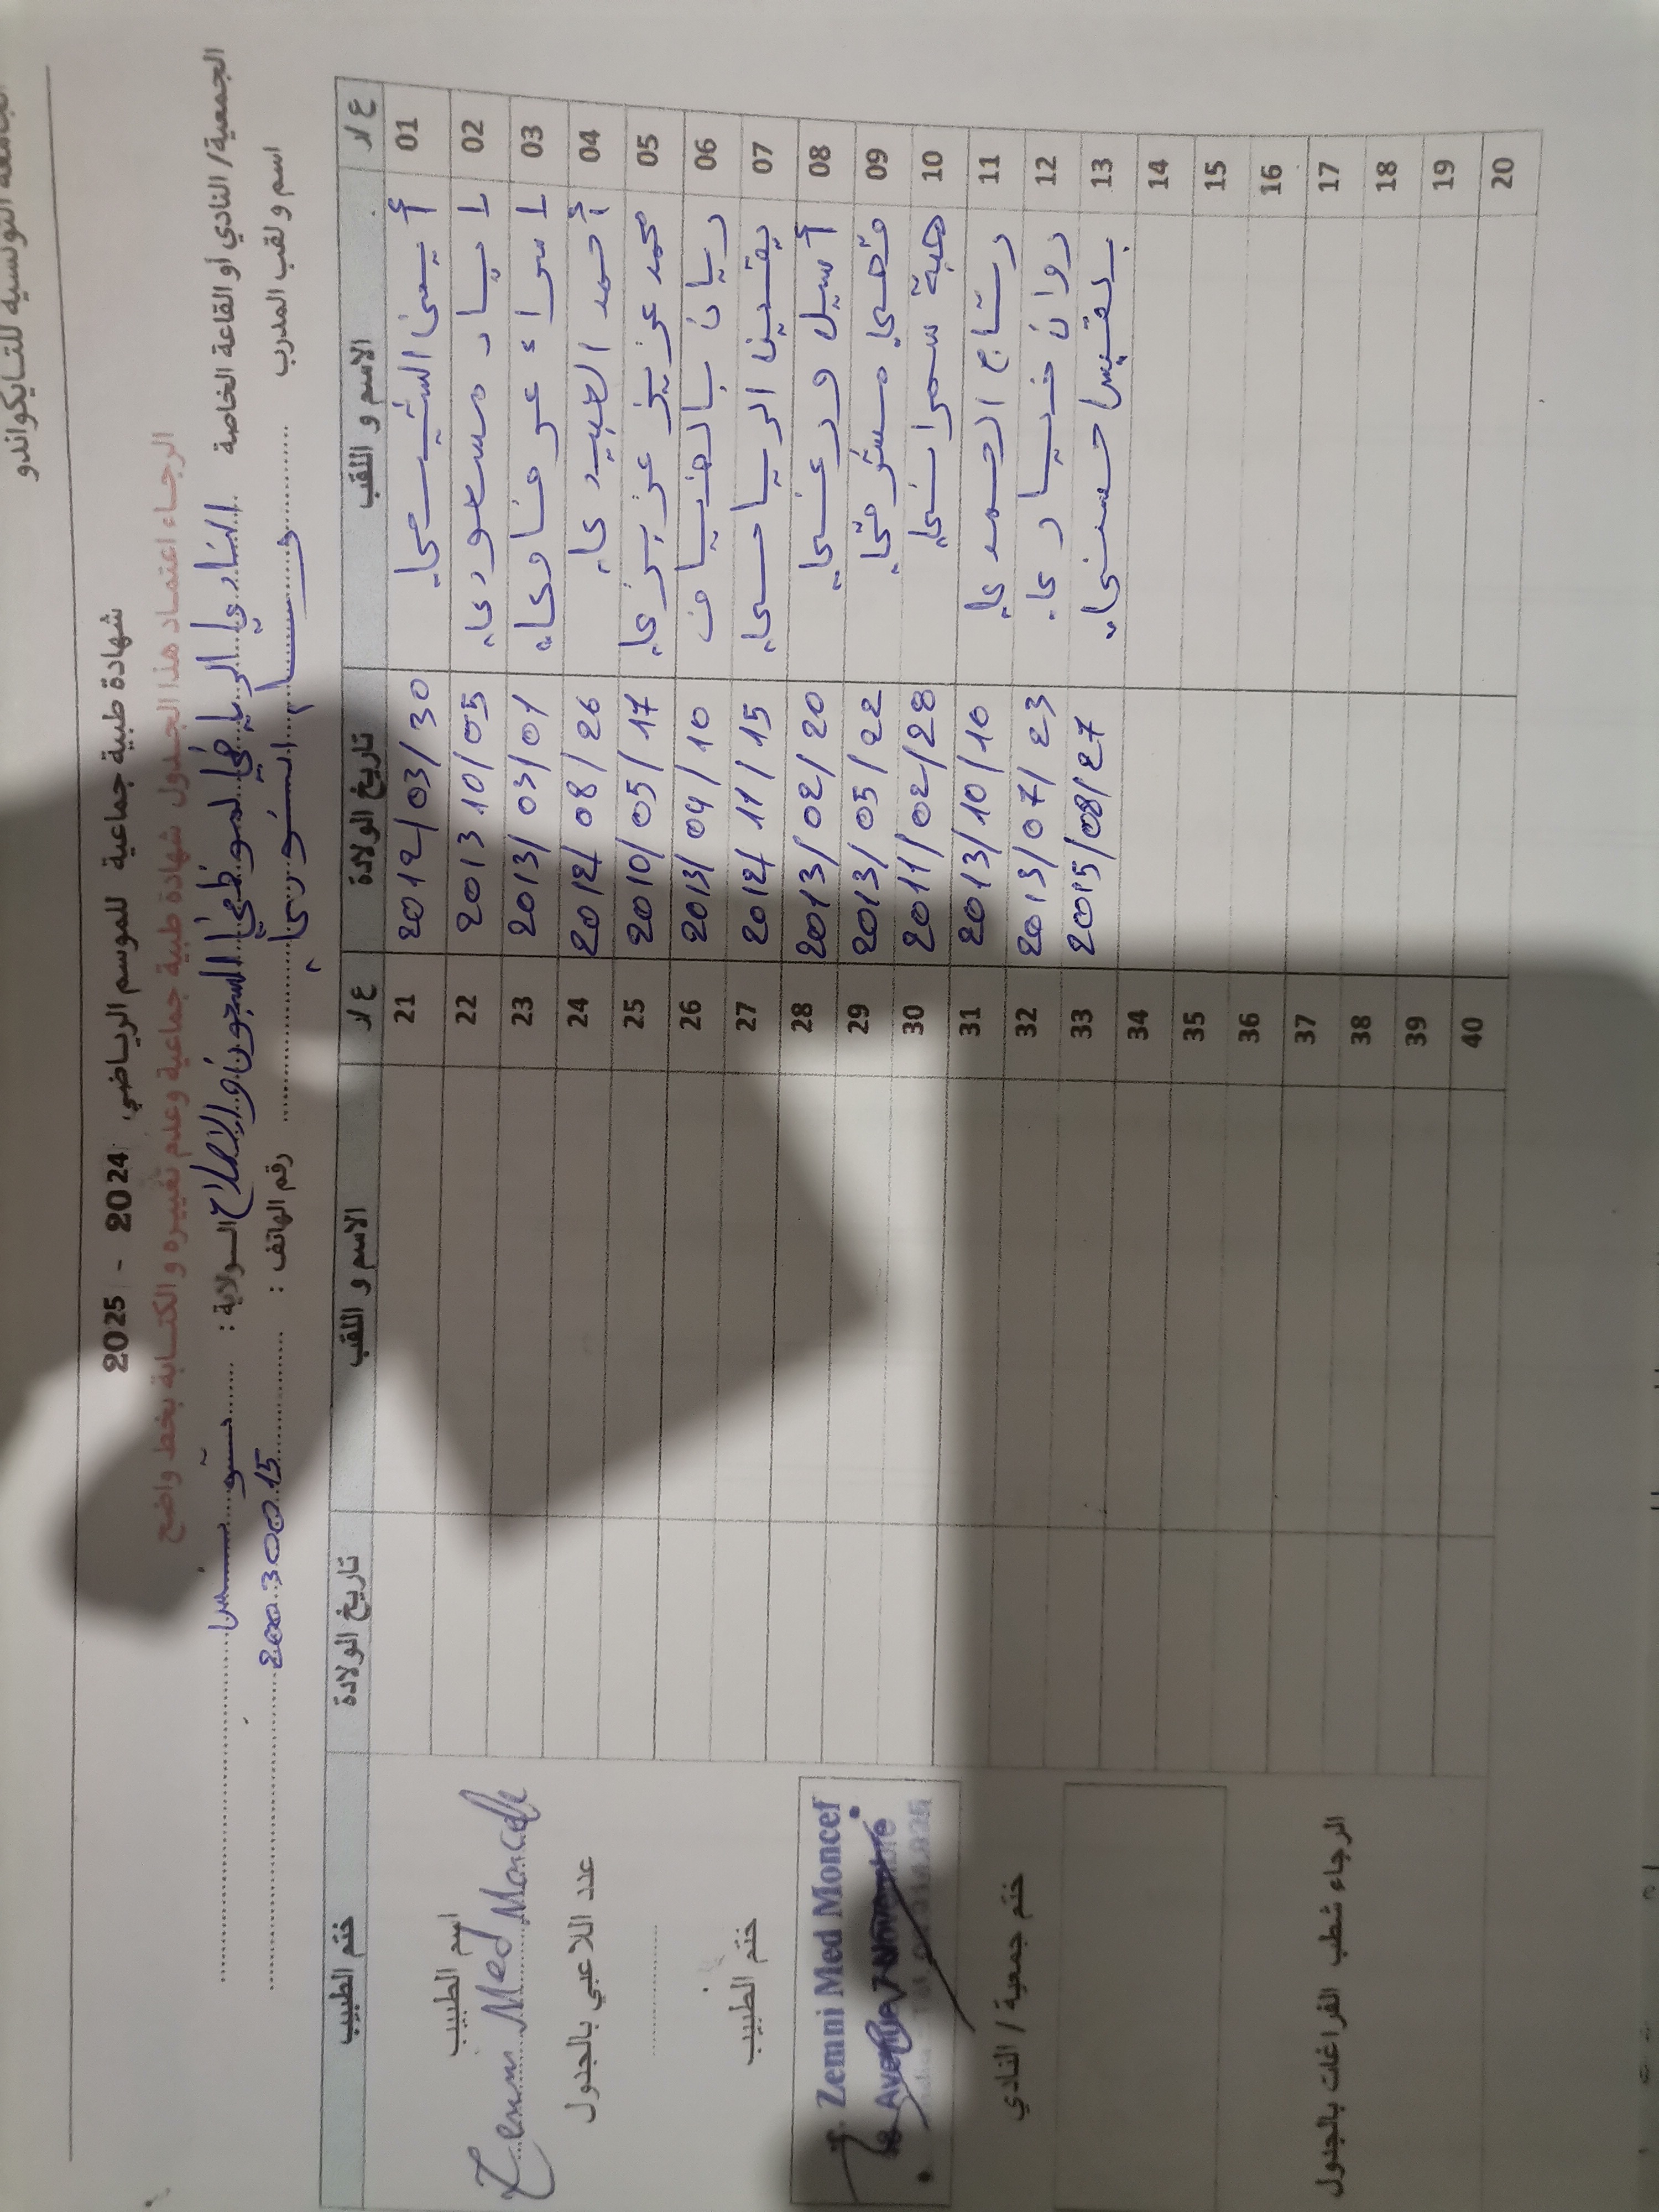 الجامعة التونسية للتايكواندو
شهادة طبية جماعية للموسم الرياضي 2024 - 2025
الرجاء اعتماد هذا الجدول شهادة طبية جماعية وعدم تغييره و الكتابة بخط واضح
الجمعية/ النادي أو القاعة الخاصة النادي الرياضي لموظفي السجون والإصلاح الولاية : تونس
اسم و لقب المدرب وسام النوري رقم الهاتف : 20030015
ع لا الاسم و اللقب تاريخ الولادة ع لا الاسم و اللقب تاريخ الولادة ختم الطبيب
01 أيمن الشيحي 2012/03/30 21
02 إياد مسعودي 2013 10/05 22
03 إسراء عرفاوي 2013/03/01 23
04 أحمد العبيدي 2012/08/26 24
05 محمد عزيز عزيزي 2010/05/17 25
06 ريان بالضياف 2013/04/10 26
07 يقين الرياحي 2012/11/15 27
08 أسيل ورغي 2013/02/20 28
09 فتحي 2013/05/22 29
10 هبة سمراني 2011/02/28 30
11 رتاج الحمدي 2013/10/10 31
12 روان خياري 2013/07/23 32
13 بلقيس حسني 2015/08/27 33
14 34
15 35
16 36
17 37
18 38
19 39
20 40
اسم الطبيب
Zemni Med Moncef
عدد اللاعبي بالجدول
ختم الطبيب
Zemni Med Moncef
ختم جمعية / النادي
الرجاء شطب الفراغات بالجدول